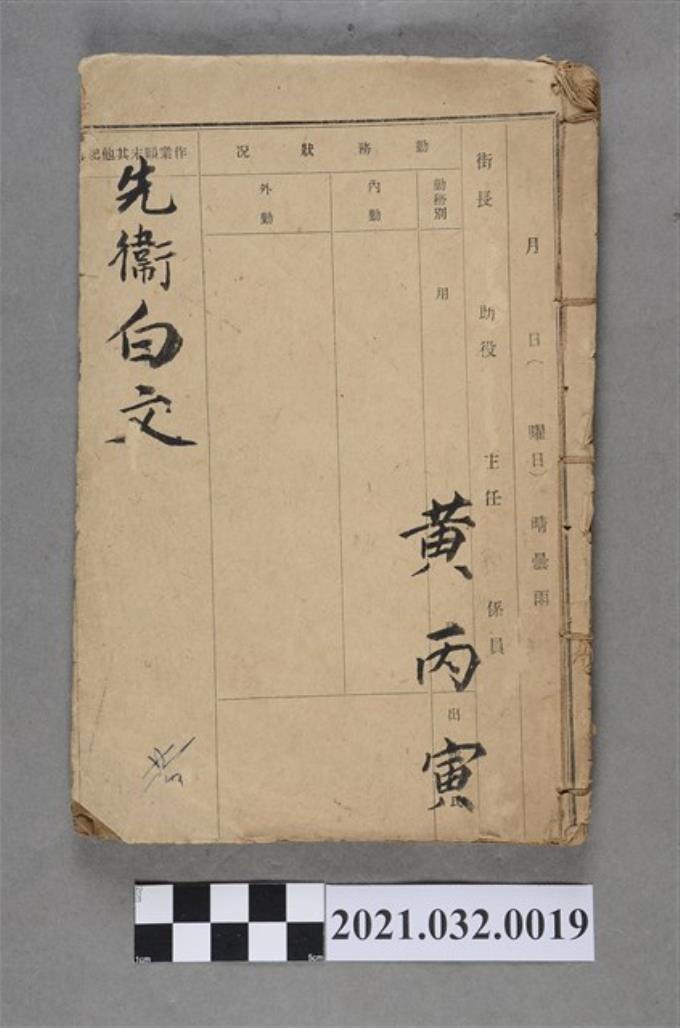 月 日( 曜日) 晴 曇 雨
街長 助役 主任 係員
勤務狀況
勤務別
內勤
外勤
用
出
作業顛末其他記
黃丙寅
先衞白文
2021.032.0019
1cm
5cm